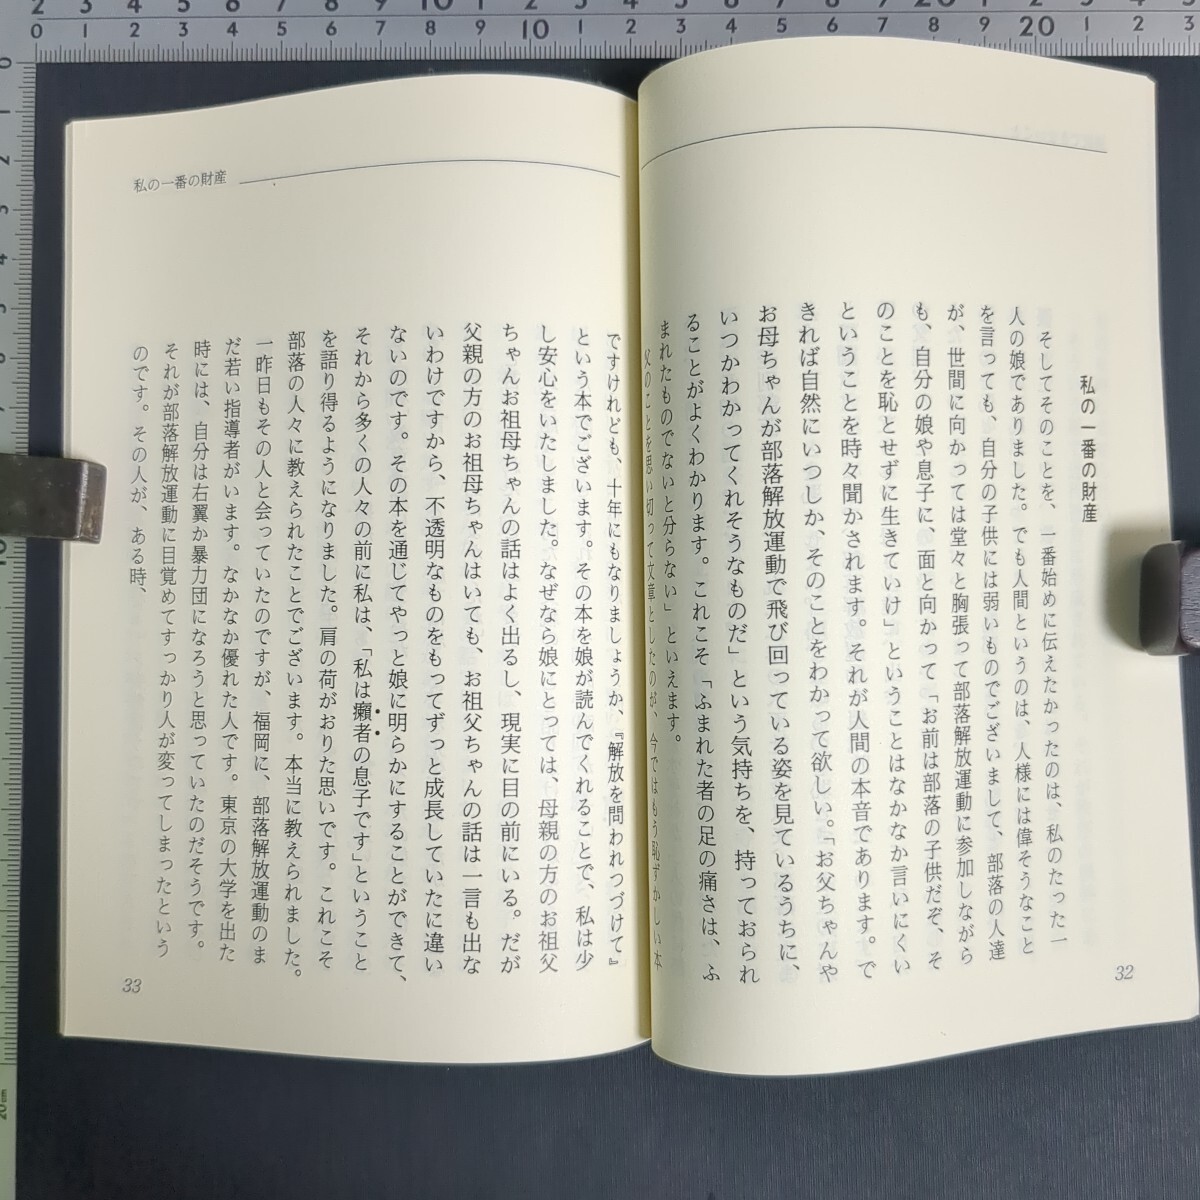 私の一番の財産
そしてそのことを、一番始めに伝えたかったのは、私のたった一
人の娘でありました。でも人間というのは、人様には偉そうなこと
を言っても、自分の子供には弱いものでございまして、部落の人達
が、世間に向かっては堂々と胸張って部落解放運動に参加しながら
も、自分の娘や息子に、面と向かって「お前は部落の子供だぞ、そ
のことを恥とせずに生きていけ」ということはなかなか言いにくい
ということを時々聞かされます。それが人間の本音であります。で
きれば自然にいつしか、そのことをわかって欲しい。「お父ちゃんや
お母ちゃんが部落解放運動で飛び回っている姿を見ているうちに、
いつかわかってくれそうなものだ」という気持ちを、持っておられ
ることがよくわかります。これこそ「ふまれた者の足の痛さは、ふ
まれたものでないと分らない」といえます。
父のことを思い切って文章としたのが、今ではもう恥ずかしい本
32
私の一番の財産
ですけれども、十年にもなりましょうか、『解放を問われつづけて』
という本でございます。その本を娘が読んでくれることで、私は少
し安心をいたしました。なぜなら娘にとっては、母親の方のお祖父
ちゃんお祖母ちゃんの話はよく出るし、現実に目の前にいる。だが
父親の方のお祖母ちゃんはいても、お祖父ちゃんの話は一言も出な
いわけですから、不透明なものをもってずっと成長していたに違い
ないのです。その本を通じてやっと娘に明らかにすることができて、
それから多くの人々の前に私は、「私は癩者の息子です」ということ
を語り得るようになりました。肩の荷がおりた思いです。これこそ
部落の人々に教えられたことでございます。本当に教えられました。
一昨日もその人と会っていたのですが、福岡に、部落解放運動のま
だ若い指導者がいます。なかなか優れた人です。東京の大学を出た
時には、自分は右翼か暴力団になろうと思っていたのだそうです。
それが部落解放運動に目覚めてすっかり人が変ってしまったという
のです。その人が、ある時、
33